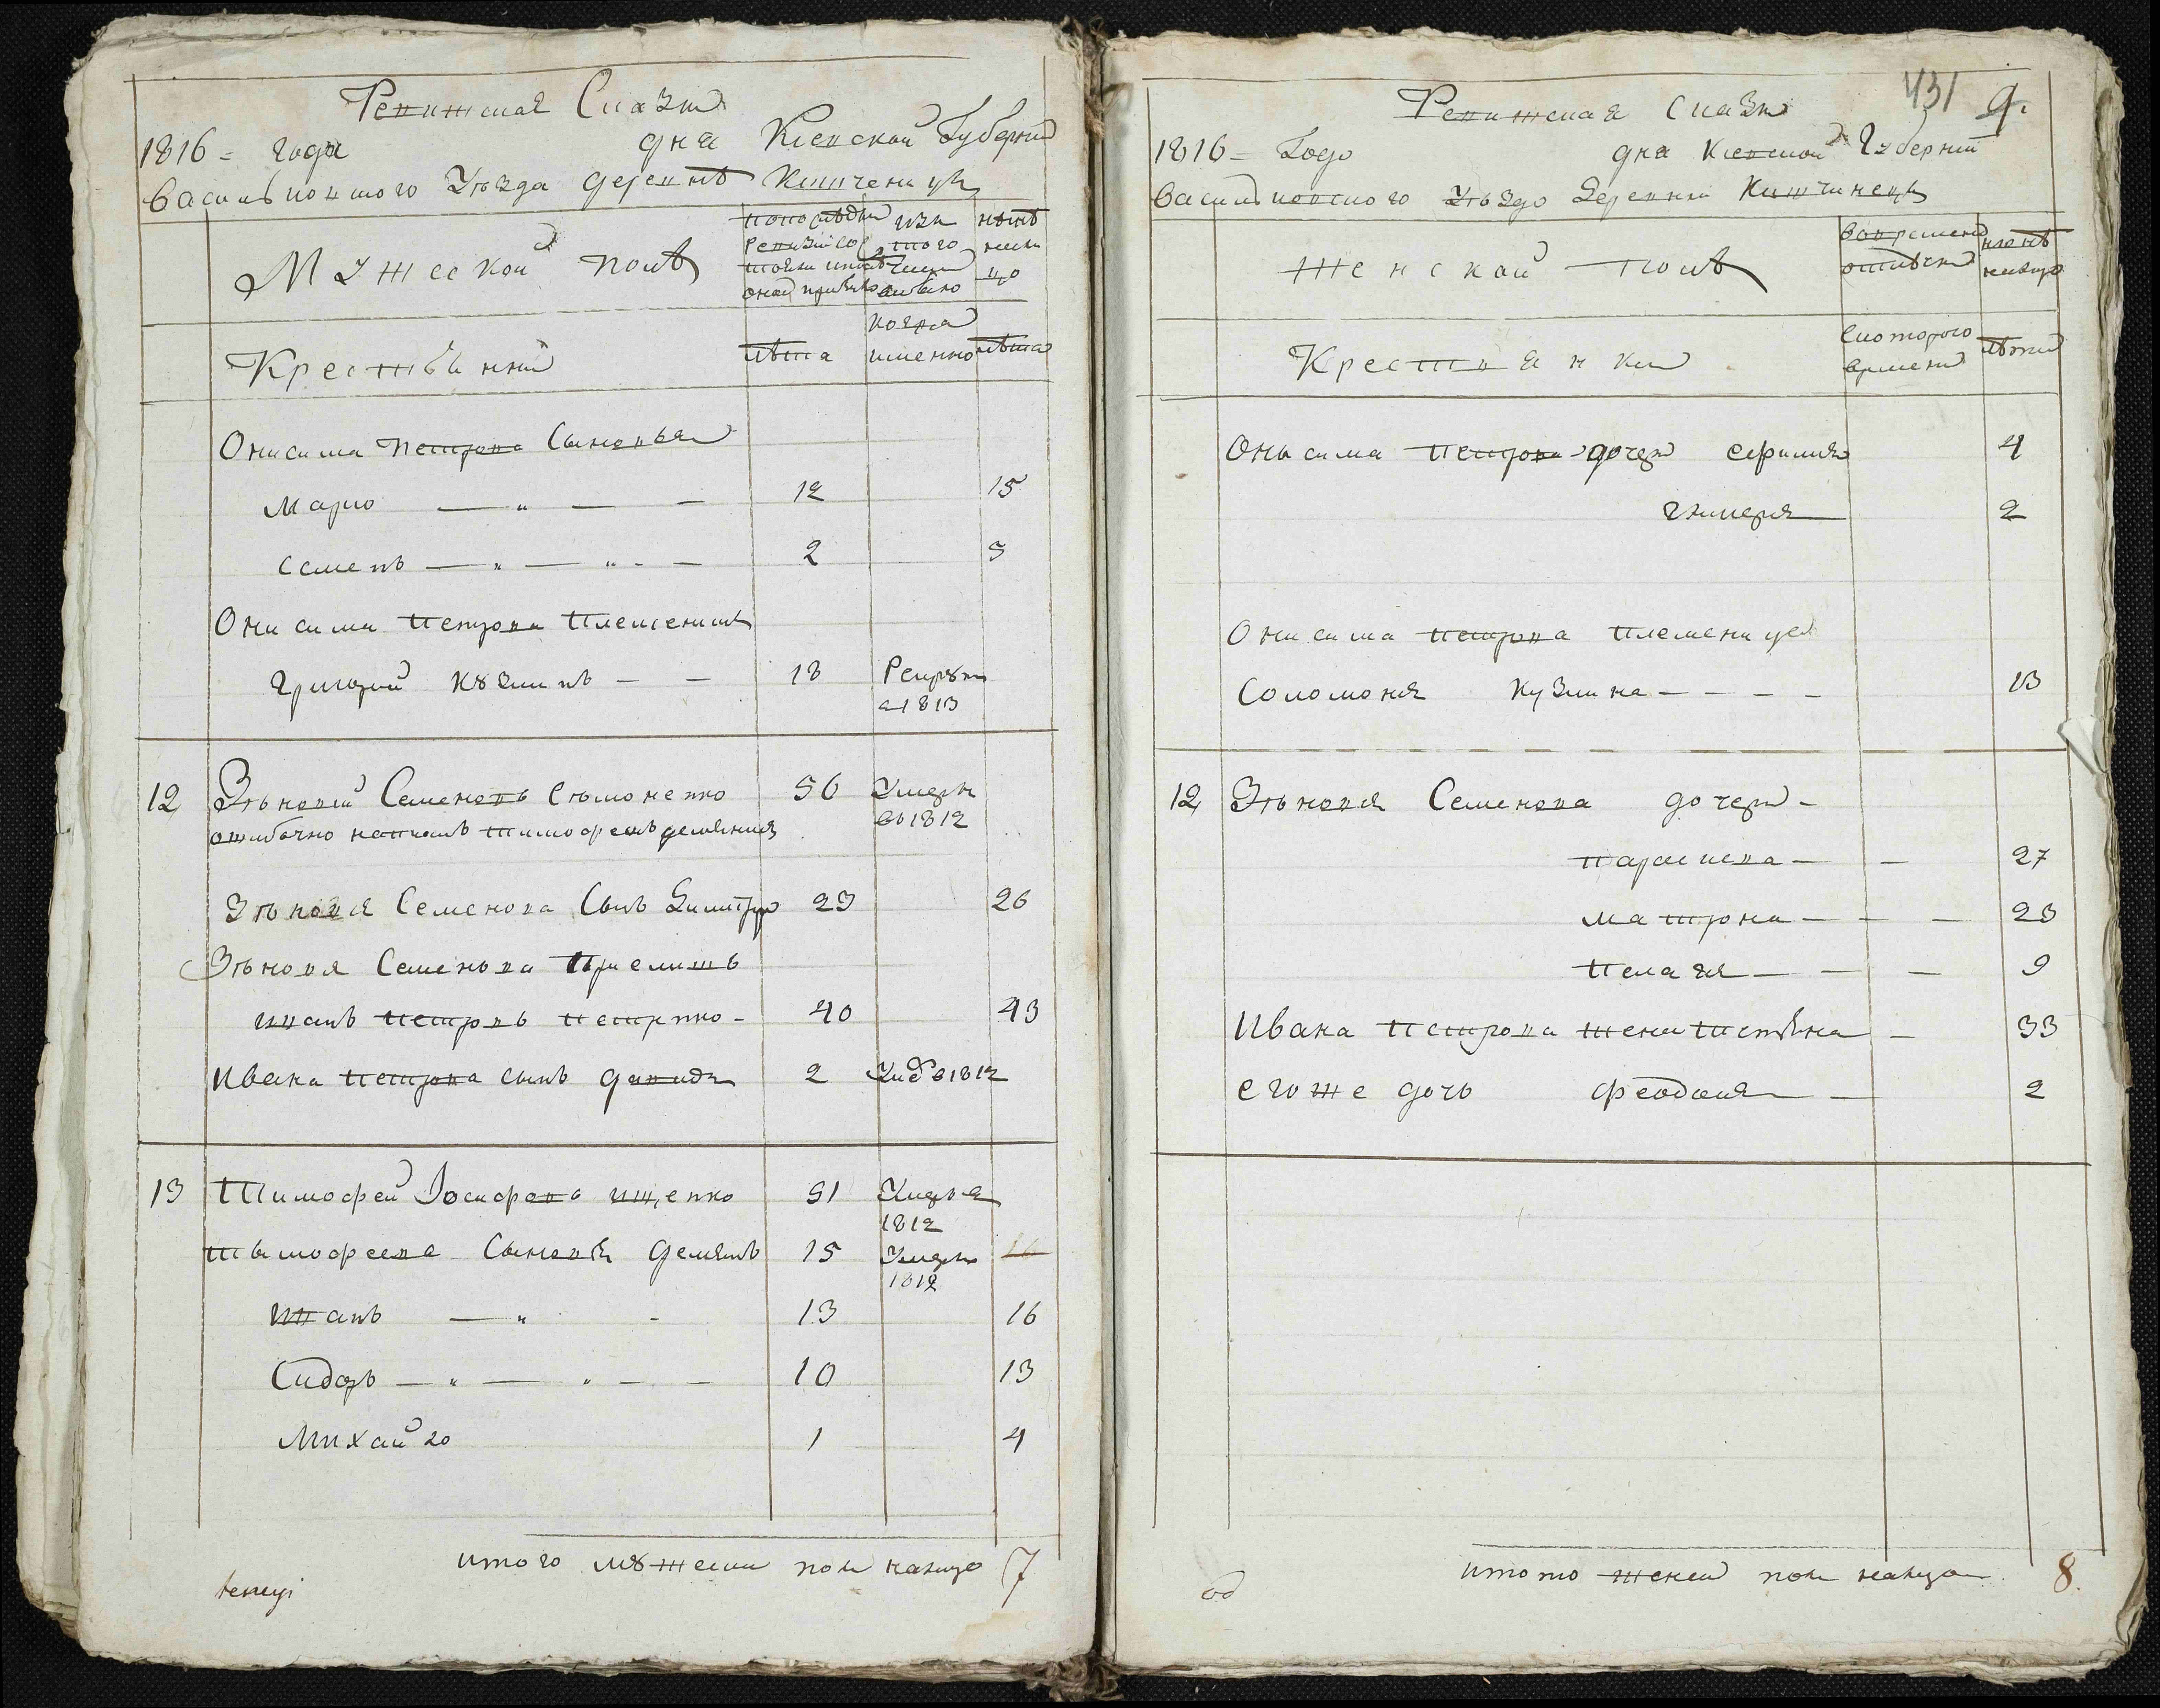 Ревижская Сказка
1816 = года дня Киевской Губернии
Васильковского Уезда деревнѣ
Мужеской полъ
по последней ревизии состояло и после оной прибыло
изъ того числа выбыло
нынѣ на лицо
Крестьянии
лѣта
когда именно
лѣта
Онисима Петрова Сыновья
Марко — „ — — 12 15
Семенъ — „ — „ - — 2 5
Онисима Петрова Племенникъ
Григорий Кузминъ — — 18 Рекрутъ в 1813
12 Зѣновий Семеновъ 56 Умеръ въ 1812
ошибочно написанъ Тимофеемъ
Зѣновия Семенова Сынъ Димитрий 23 26
Зѣновия Семенова Приемишъ
Иванъ Петровъ - 40 43
Ивана Петрова сынъ Давидъ 2 Умер в 1812
13 Тимофей Иосифова Ищенко 51 Умеръ в 1812
Тымофеева Сыновья Демянъ 15 Умеръ 1812
Иванъ — „ - 13 16
Сидоръ — „ — „ — — 10 13
Михайло 1 4
итого мужеска пола налицо 7
431 9.
Ревижская Сказка
1816 = Года дня Киевской Губернии
Васильковского Уезда Деревни
Женской полъ
во временной отлучке
нынѣ налицо
Крестьянки
с которого времени
лѣта
Онысима Петрова дочери Ефимия 4
Гликерия 2
Онисима Петрова Племеница
Соломония Кузмина — — — — 13
12 Зѣновия Семенова дочери -
Параскева — — 27
Матрона — — — 23
Пелагия — — — 9
Ивана Петрова жена Тетяна — 33
егоже дочь Феодосия — 2
итого женска пола налицо 8.